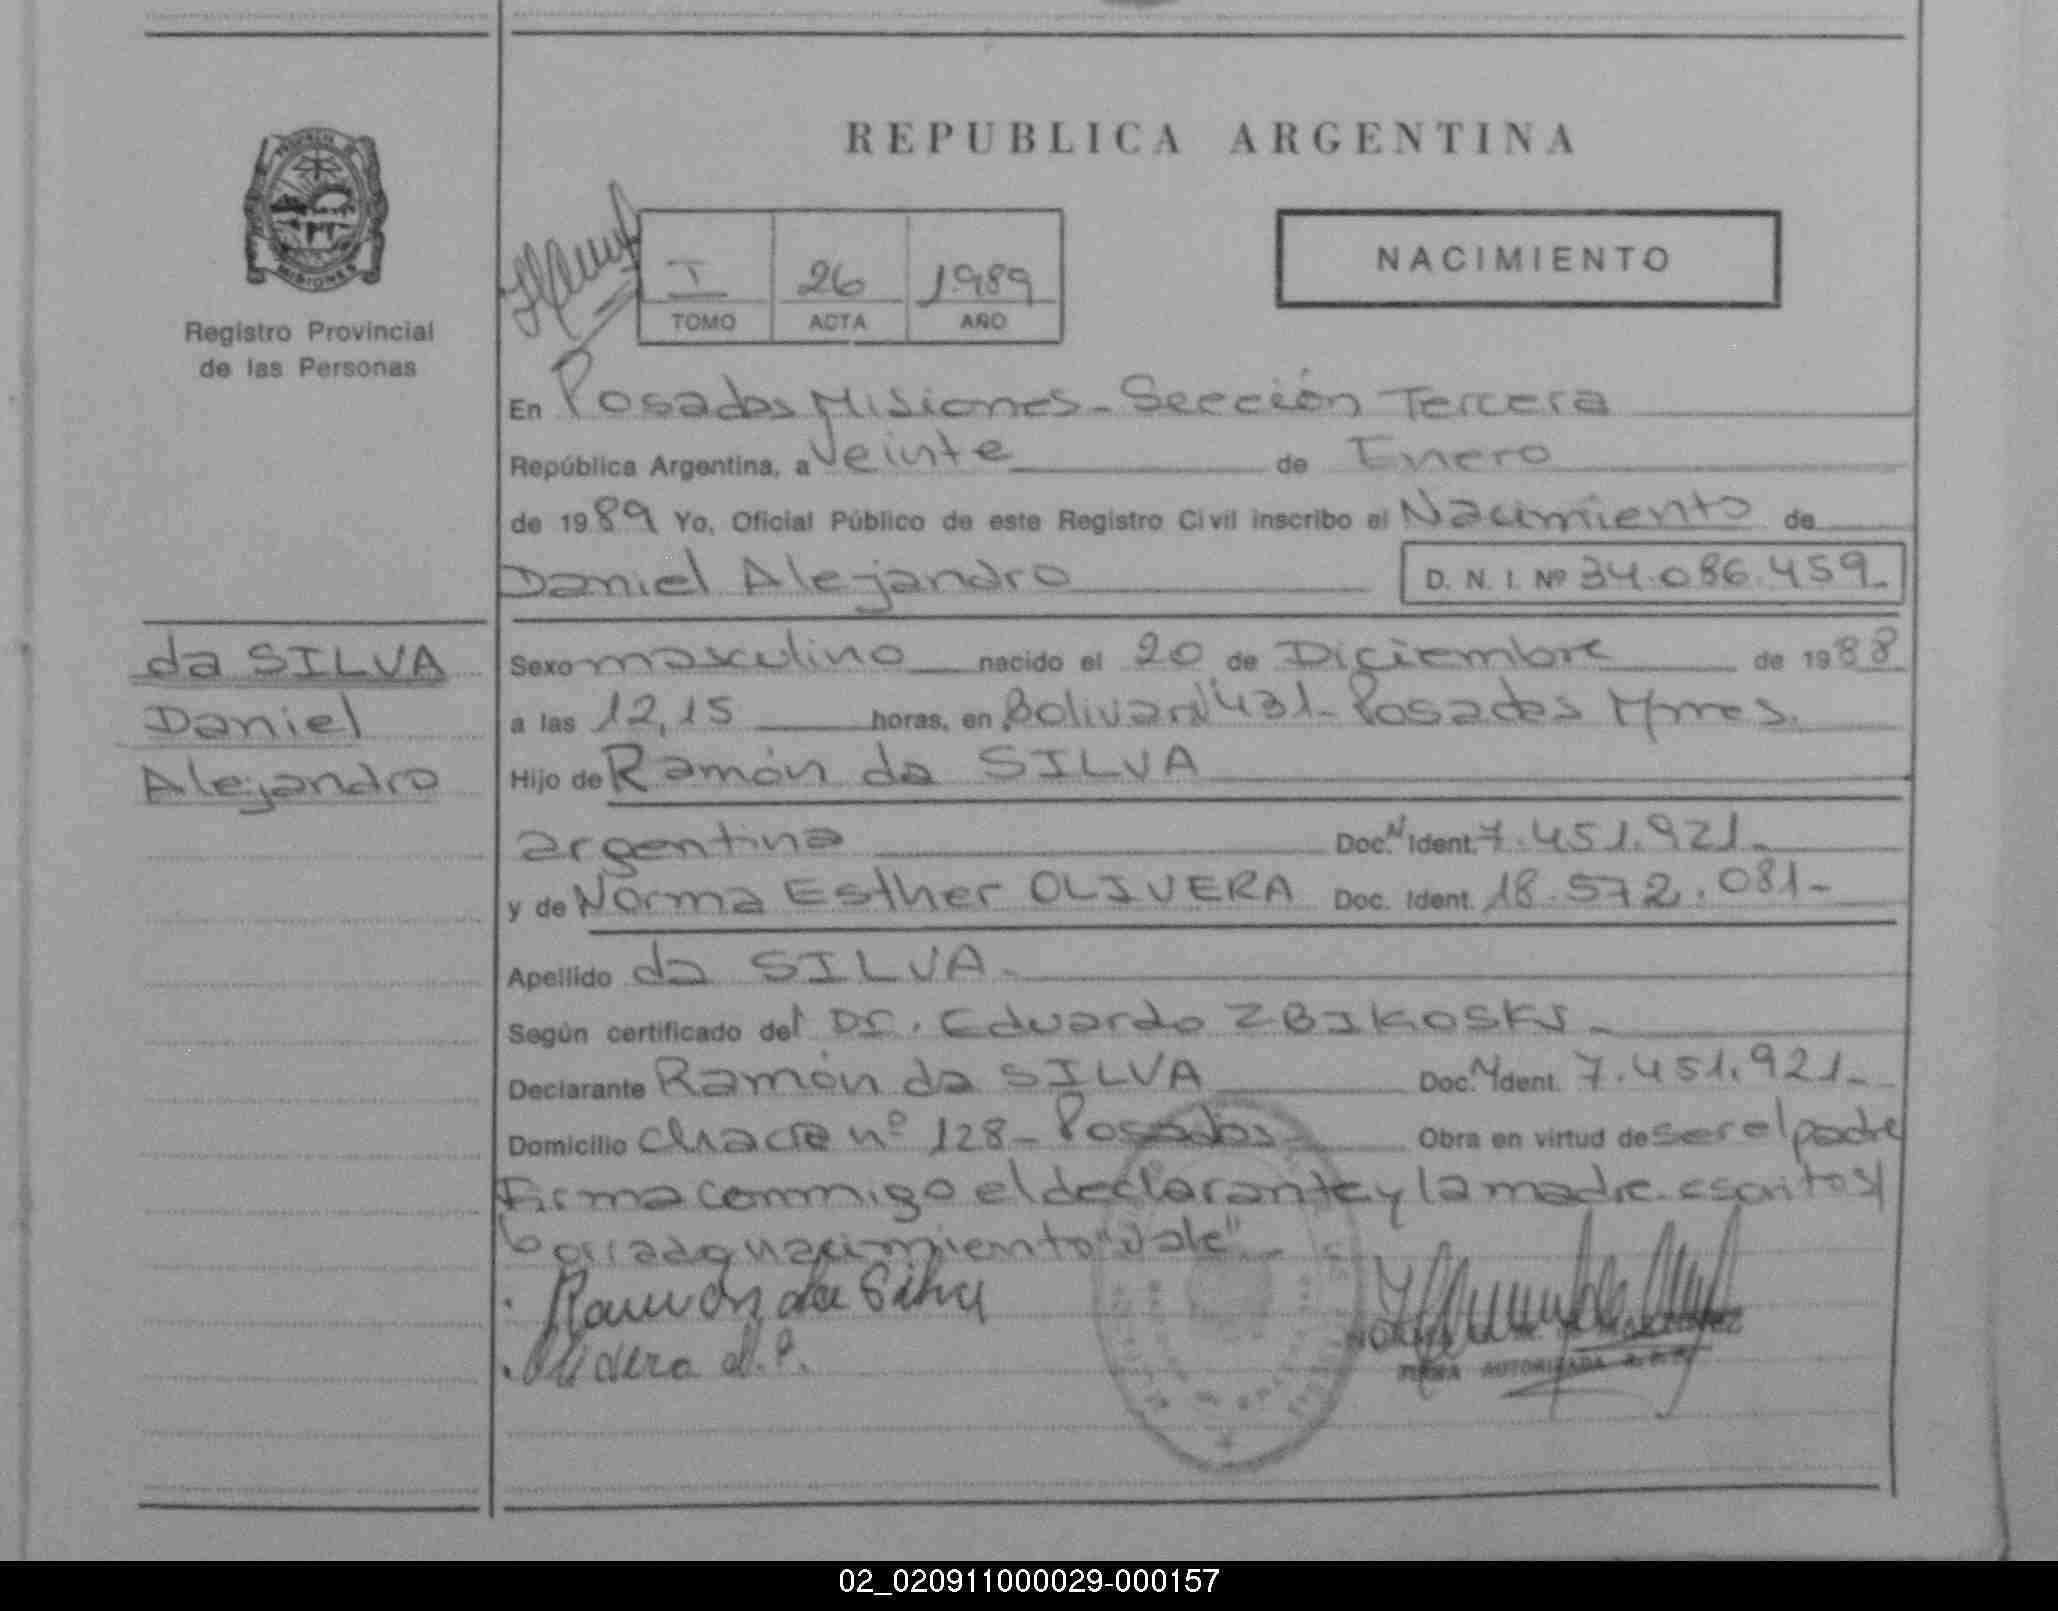 REPUBLICA ARGENTINA
PROVINCIA DE
MISIONES
Registro Provincial
de las Personas
I 26 1989
TOMO ACTA AÑO
NACIMIENTO
En Posadas Misiones - Sección Tercera
República Argentina, a Veinte de Enero
de 1989 Yo, Oficial Público de este Registro Civil inscribo el Nacimiento de
Daniel Alejandro D. N. I. Nº 34.086.459-
da SILVA
Daniel
Alejandro
Sexo masculino nacido el 20 de Diciembre de 1988
a las 12,15 horas, en Bolivar 431- Posadas Mnes.
Hijo de Ramón da SILVA
argentina Doc. N Ident. 7.451.921-
y de Norma Esther OLIVERA Doc. Ident. 18.572.081-
Apellido da SILVA-
Según certificado del Dr. Eduardo ZBIKOSKI-
Declarante Ramón da SILVA Doc. N Ident. 7.451.921-
Domicilio chacra nº 128- Posadas- Obra en virtud de ser el padre
Firma conmigo el declarante y la madre. escrito s/
borrado nacimiento "Vale"-
Ramón da Silva
FIRMA AUTORIZADA
02_020911000029-000157